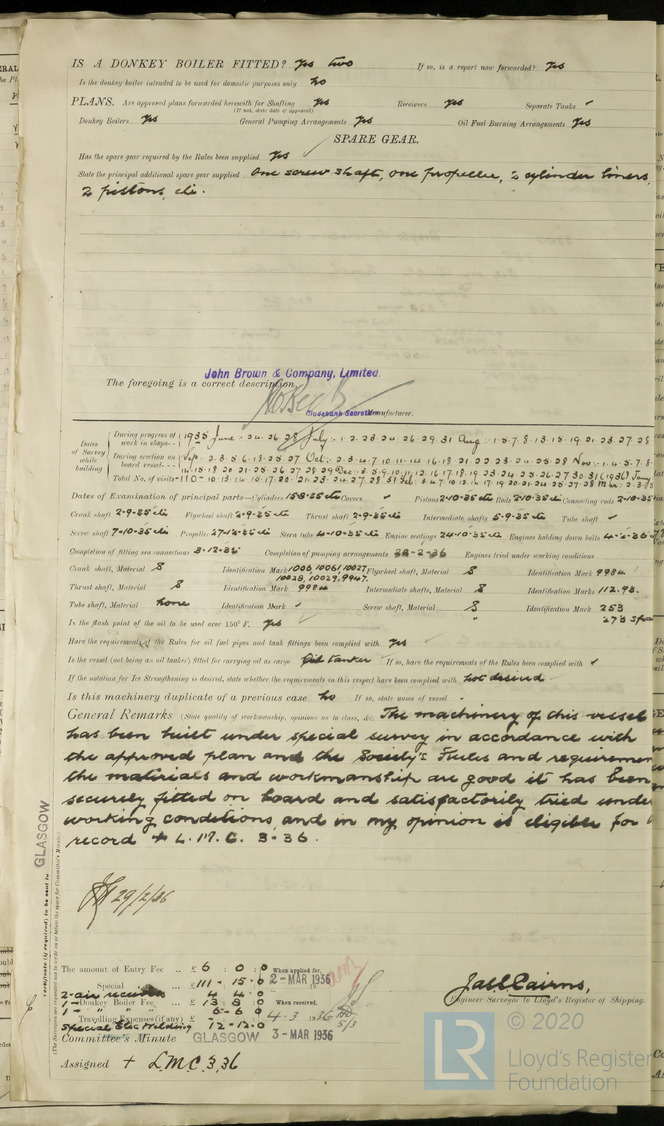 IS A DONKEY BOILER FITTED? Yes two If so, is a report now forwarded? Yes
Is the donkey boiler intended to be used for domestic purposes only No
PLANS. Are approved plans forwarded herewith for Shafting Yes Receivers Yes Separate Tanks ✓
(If not, state date of approval)
Donkey Boilers Yes General Pumping Arrangements Yes Oil Fuel Burning Arrangements Yes
SPARE GEAR.
Has the spare gear required by the Rules been supplied Yes
State the principal additional spare gear supplied One screw shaft, one propeller, 2 cylinder liners,
2 pistons, etc.
John Brown & Company, Limited.
The foregoing is a correct description,
Clydebank Secretary Manufacturer.
Dates of Survey while building
During progress of work in shops - - 1935 June: 24 26 28 July: 1 2 23 24 26 29 31 Aug: 1 5 7 8 13 15 19 21 23 27 28
During erection on board vessel - - - Sep: 2 3 5 6 18 25 27 Oct: 2 3 4 7 10 11 14 16 18 21 22 23 24 25 28 Nov: 1 4 5 7 8
14 15 18 20 21 25 26 27 28 29 Dec: 3 5 9 10 11 12 16 17 18 19 23 24 25 26 27 30 31 (1936) Jany
Total No. of visits 110
Dates of Examination of principal parts—Cylinders 15-8-35 etc Covers ✓ Pistons 2-10-35 etc Rods 2-10-35 etc Connecting rods 2-10-35
Crank shaft 2-9-35 etc Flywheel shaft 2-9-35 etc Thrust shaft 2-9-35 etc Intermediate shafts 5-9-35 etc Tube shaft ✓
Screw shaft 7-10-35 etc Propeller 27-12-35 etc Stern tube 4-10-35 etc Engine seatings 24-10-35 etc Engines holding down bolts 4-2-36
Completion of fitting sea connections 3-12-35 Completion of pumping arrangements 28-2-36 Engines tried under working conditions
Crank shaft, Material S Identification Mark 10060, 10061, 10027, Flywheel shaft, Material S Identification Mark 9984
10028, 10029, 9947.
Thrust shaft, Material S Identification Mark 9984 Intermediate shafts, Material S Identification Marks 112.93.
Tube shaft, Material None Identification Mark ✓ Screw shaft, Material S Identification Mark 253
" 273 Spare
Is the flash point of the oil to be used over 150° F. Yes
Have the requirements of the Rules for oil fuel pipes and tank fittings been complied with Yes
Is the vessel (not being an oil tanker) fitted for carrying oil as cargo Oil tanker If so, have the requirements of the Rules been complied with ✓
If the notation for Ice Strengthening is desired, state whether the requirements in this respect have been complied with not desired
Is this machinery duplicate of a previous case No If so, state name of vessel -
General Remarks (State quality of workmanship, opinions as to class, &c. The machinery of this vessel
has been built under special survey in accordance with
the approved plan and the Society's Rules and requiremen
the materials and workmanship are good it has been
securely fitted on board and satisfactorily tried unde
working conditions and in my opinion is eligible for
record + L.M.C. 3-36.
29/2/36
GLASGOW
The amount of Entry Fee .. £ 6 : 0 : 0 When applied for,
Special .. £ 111 - 15 . 0 2 - MAR 1936
2 air receivers 4 4 0
1 - Donkey Boiler Fee 13 8 0 When received,
1 - " " " 5 - 6 0 4. 3. 1936
Travelling Expenses (if any) £ 5/3
Special Elec Welding 12-12-0
Jas Cairns,
Engineer Surveyor to Lloyd's Register of Shipping.
Committee's Minute GLASGOW 3 - MAR 1936
Assigned + LMC 3,36
LR © 2020
Lloyd's Register
Foundation